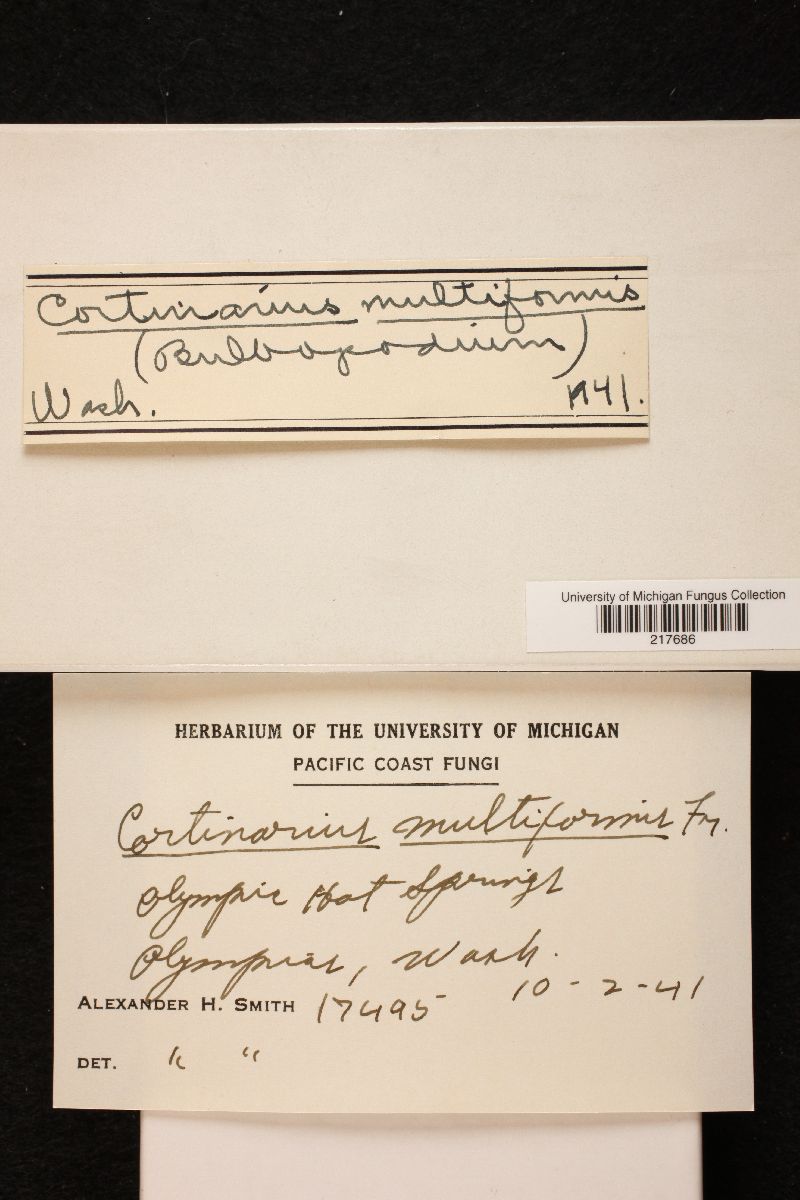 Cortinarius multiformis
(Bulbopodium)
Wash. 1941.
University of Michigan Fungus Collection
217686
HERBARIUM OF THE UNIVERSITY OF MICHIGAN
PACIFIC COAST FUNGI
Cortinarius multiformis Fr.
Olympic Hot Springs
Olympias, Wash.
ALEXANDER H. SMITH 17495 10-2-41
DET. " "